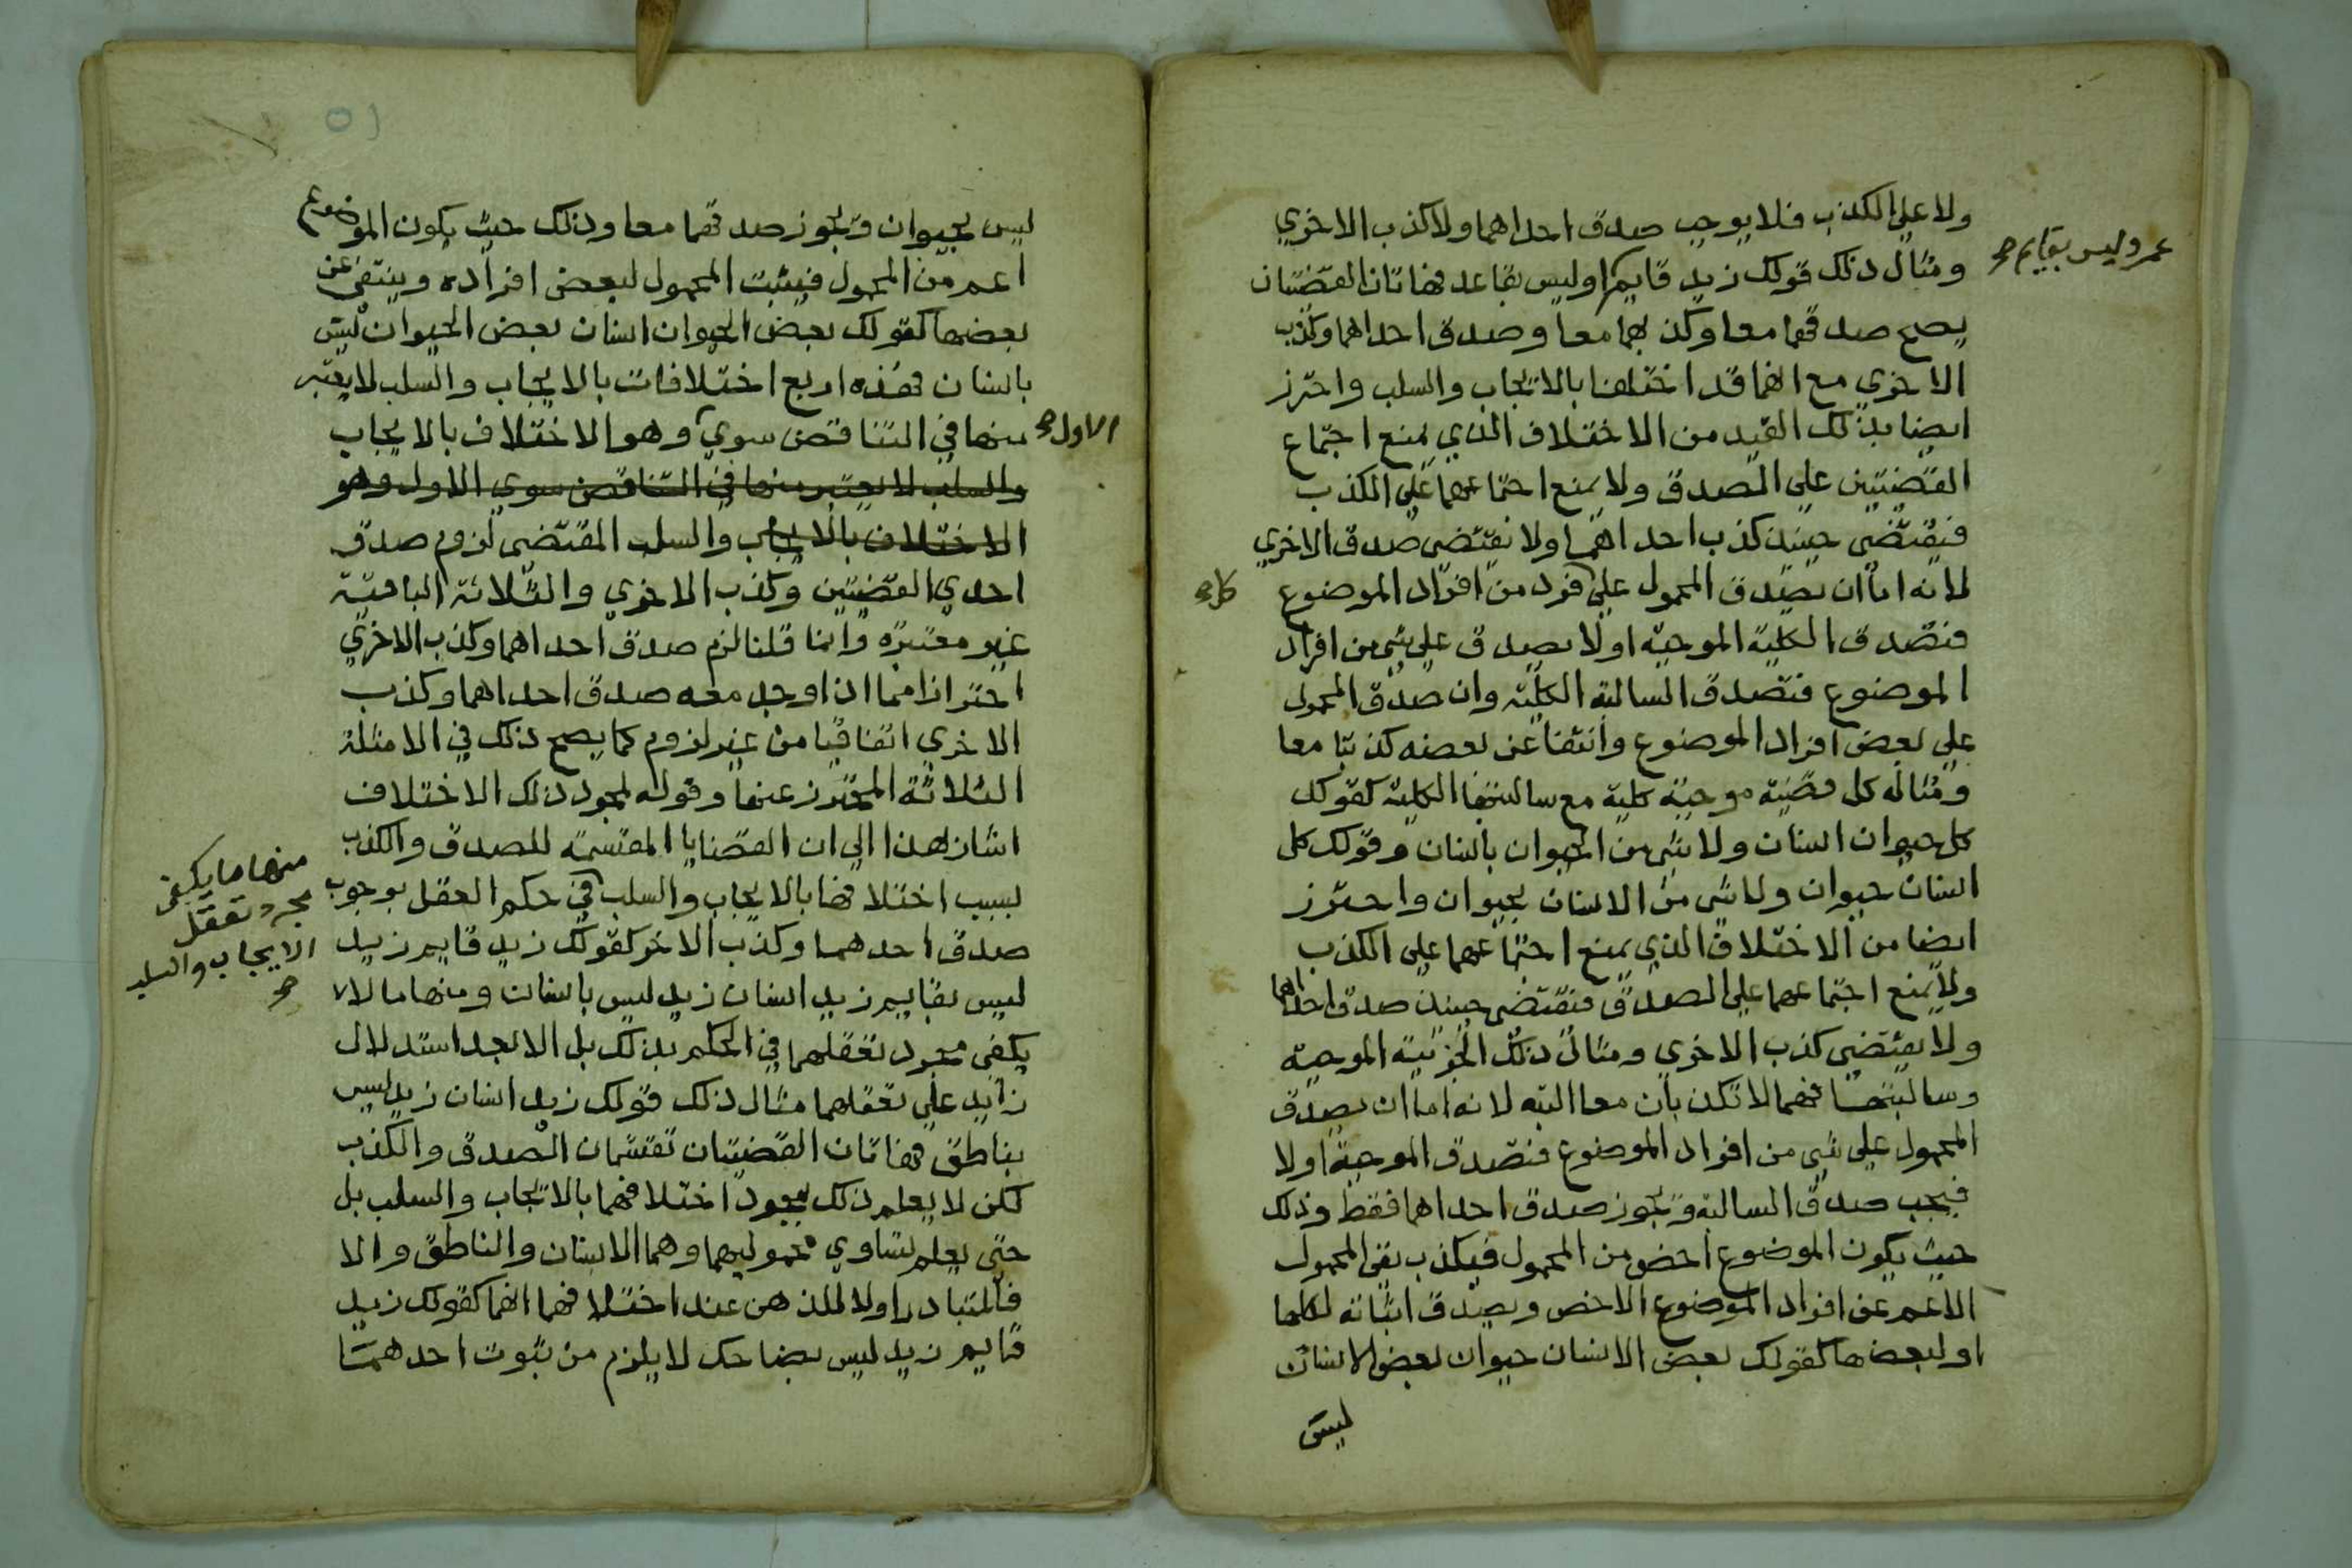 ولا علي الكذب فلا يوجب صدق احداهما ولا كذب الاخري
ومثال ذلك قولك زيد قايم او ليس بقاعد فهاتان القضيتان
عمرو ليس بقايم صح
يصح صدقهما معا وكذبهما معا وصدق احداهما وكذب
الاخري مع انهما قد اختلفتا بالايجاب والسلب واحترز
ايضا بذلك القيد من الاختلاف الذي يمنع اجتماع
القضيتين علي الصدق ولا يمنع اجتماعهما علي الكذب
فيقتضي حينيذ كذب احداهما ولا يقتضي صدق الاخري
لانه اما ان يصدق المحمول علي فرد من افراد الموضوع
كل صح
فتصدق الكلية الموجبة او لا يصدق علي شي من افراد
الموضوع فتصدق السالبة الكلية وان صدق المحمول
علي بعض افراد الموضوع وانتفا عن بعضه كذبتا معا
ومثاله كل قضية موجبة كلية مع سالبتها الكلية كقولك
كل حيوان انسان ولا شي من الحيوان بانسان وقولك كل
انسان حيوان ولا شي من الانسان بحيوان واحترز
ايضا من الاختلاف الذي يمنع اجتماعهما علي الكذب
ولا يمنع اجتماعهما علي الصدق فتقتضي حينيذ صدق احداهما
ولا يقتضي كذب الاخري ومثال ذلك الجزئية الموجبة
وسالبتها فهما لا تكذبان معا البته لانه اما ان يصدق
المحمول علي شي من افراد الموضوع فتصدق الموجبة او لا
فيجب صدق السالبة ويجوز صدق احداهما فقط وذلك
حيث يكون الموضوع اخص من المحمول فيكذب نفي المحمول
الاعم عن افراد الموضوع الاخص ويصدق اثباته لكلها
او لبعضها كقولك بعض الانسان حيوان بعض الانسان
ليس
ليس بحيوان ويجوز صدقهما معا وذلك حيث يكون الموضوع
اعم من المحمول فيثبت المحمول لبعض افراده وينتفي عن
بعضها كقولك بعض الحيوان انسان بعض الحيوان ليس
بانسان فهذه اربع اختلافات بالايجاب والسلب لا يعتبر
منها في التناقض سوي وهو الاختلاف بالايجاب
الاول صح
والسلب لا يعتبر منها في التناقض سوي الاول وهو
الاختلاف بالايجاب والسلب المقتضي لزوم صدق
احدي القضيتين وكذب الاخري والثلاثة الباقية
غير معتبره وانما قلنا لزم صدق احداهما وكذب الاخري
احترازا مما اذا وجد معه صدق احداهما وكذب
الاخري اتفاقيا من غير لزوم كما يصح ذلك في الامثلة
الثلاثة المحترز عنها وقوله لمجرد ذلك الاختلاف
اشار بهذا الي ان القضايا المقتسمة للصدق والكذب
بسبب اختلافها بالايجاب والسلب في حكم العقل بوجوب
منها ما يكفي
مجرد تعقل
الايجاب والسلب
صح
صدق احدهما وكذب الاخر كقولك زيد قايم زيد
ليس بقايم زيد انسان زيد ليس بانسان ومنها ما لا
يكفي مجرد تعقلهما في الحكم بذلك بل الا بعد استدلال
زايد علي تعقلهما مثال ذلك قولك زيد انسان زيد ليس
بناطق فهاتان القضيتان تقتسمان الصدق والكذب
لكن لا يعلم ذلك بمجرد اختلافهما بالايجاب والسلب بل
حتي يعلم تساوي محموليهما وهما الانسان والناطق والا
فالمتبادر اولا للذهن عند اختلافهما انهما كقولك زيد
قايم زيد ليس بضاحك لا يلزم من ثبوت احدهما